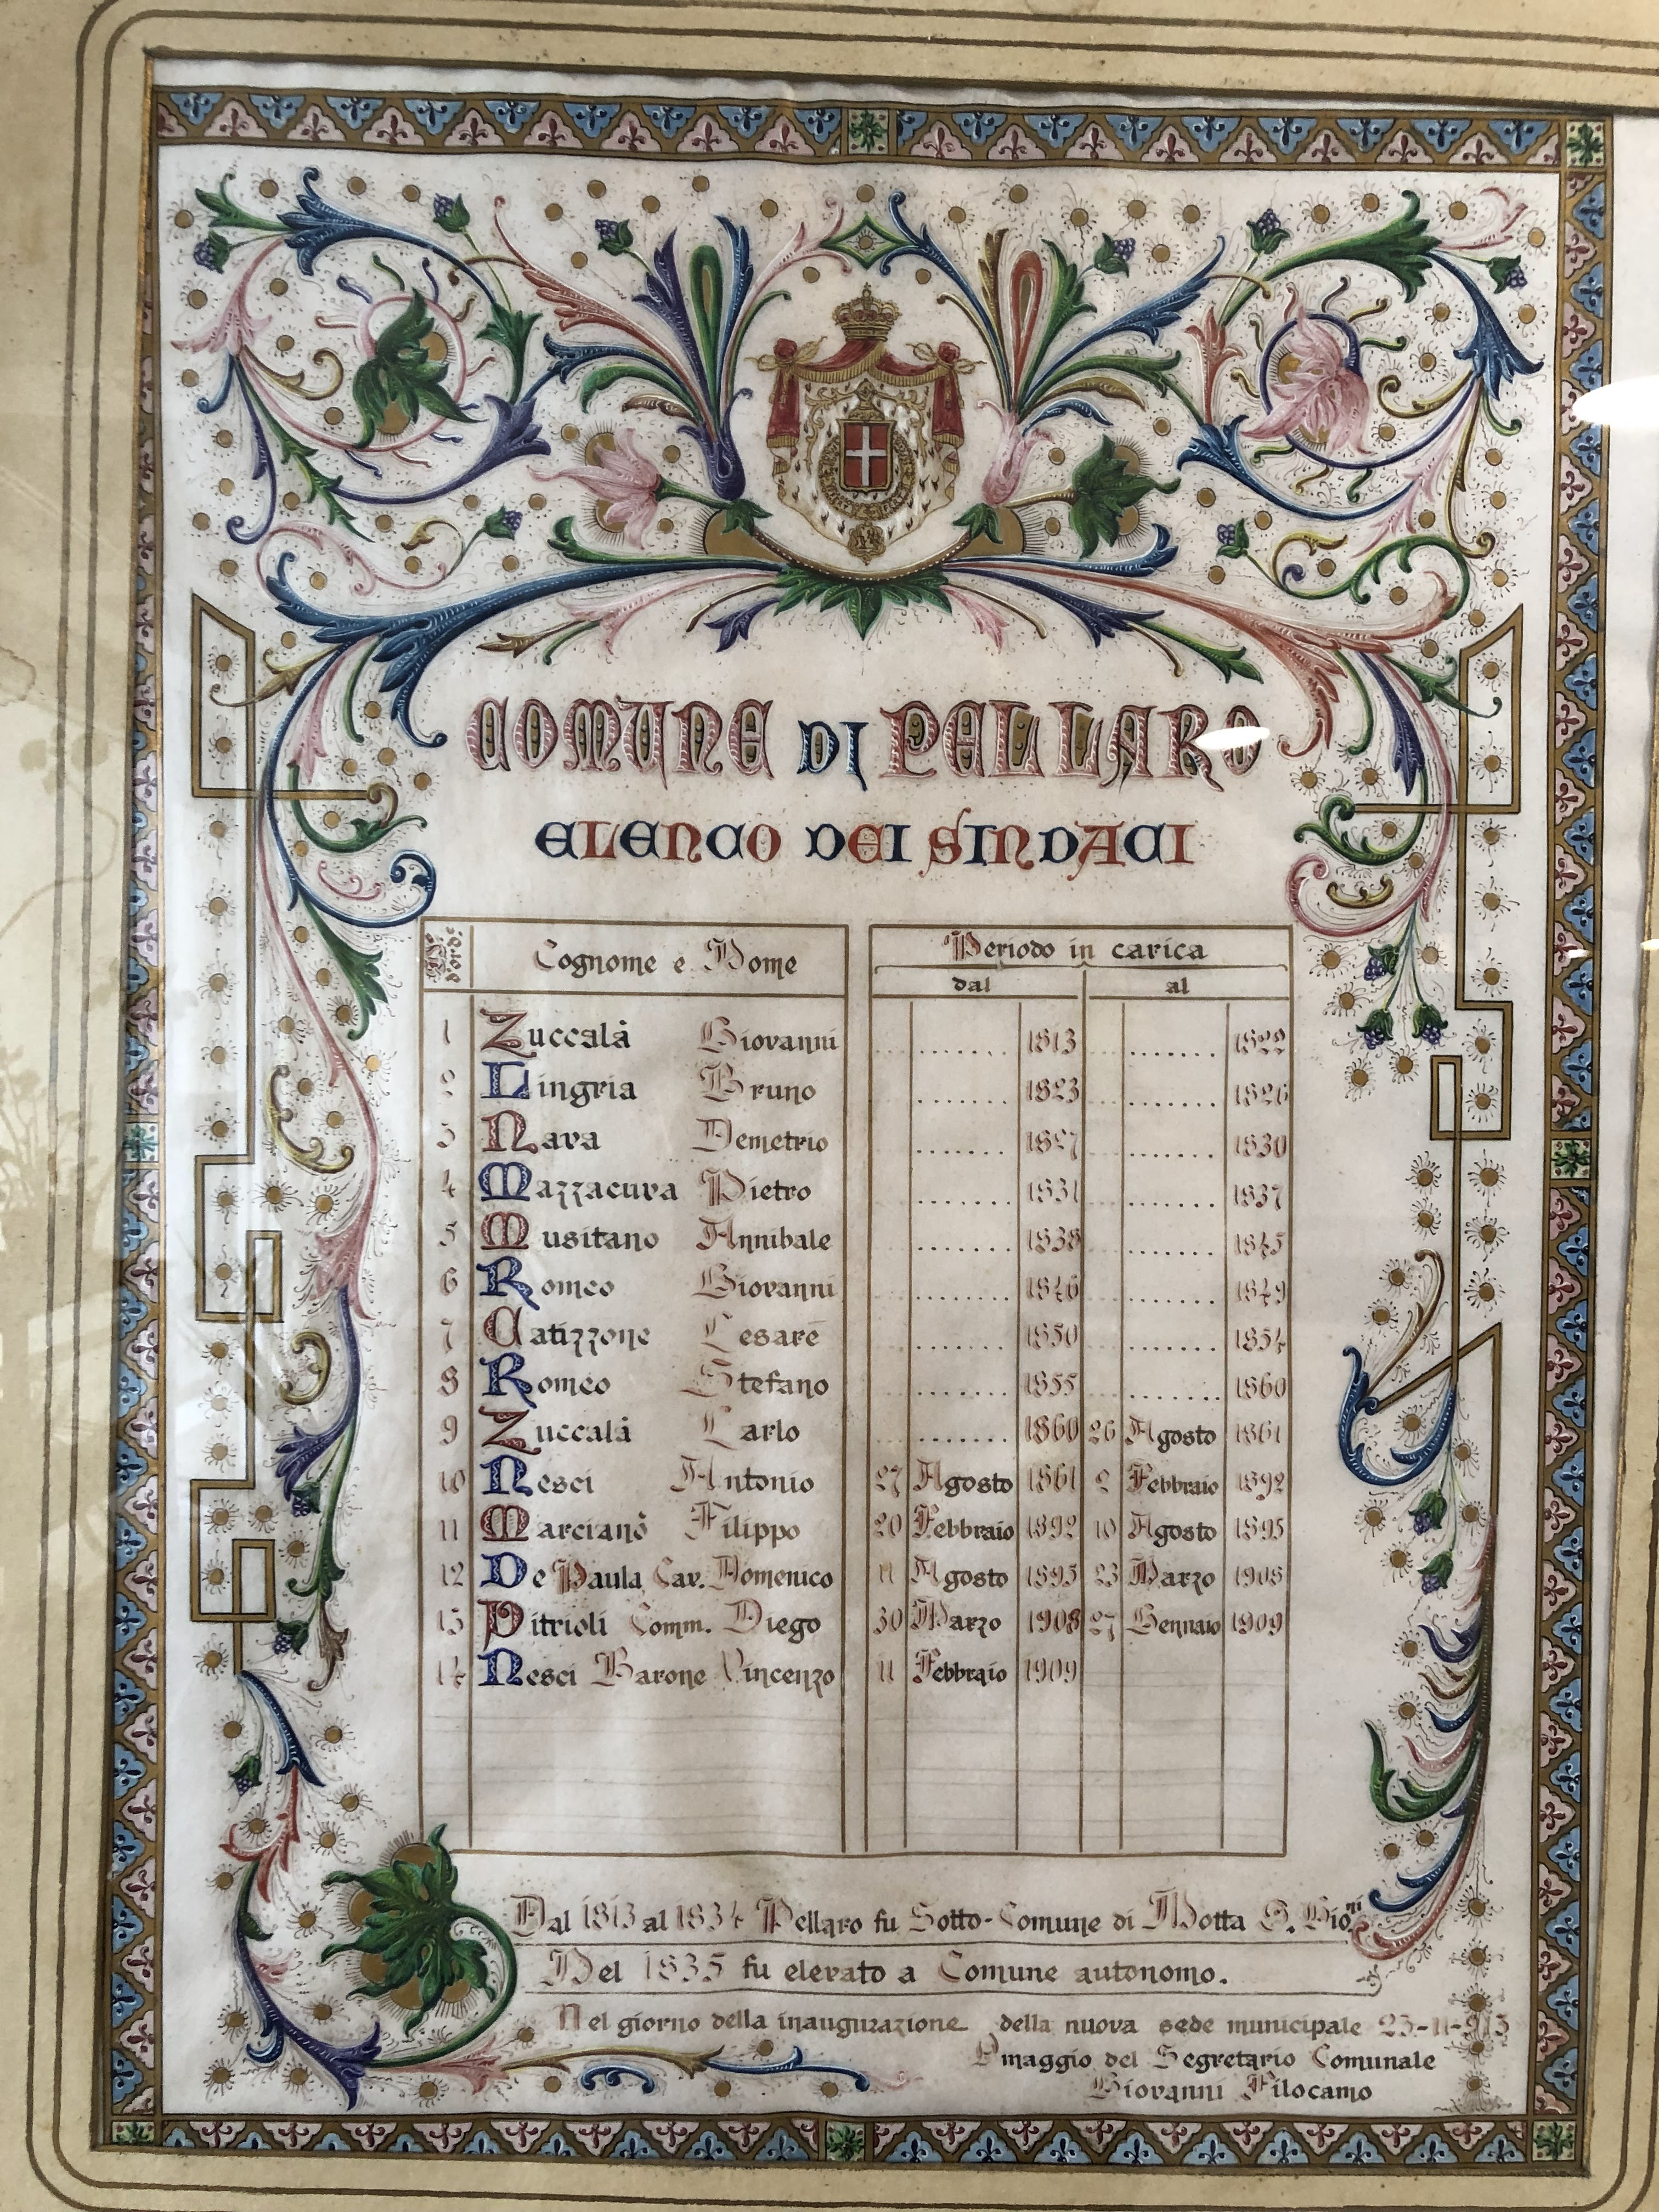 COMUNE DI PELLARO
ELENCO DEI SINDACI
N° d'ord: Cognome e Nome Periodo in carica
dal al
1 Zuccalà Giovanni ....... 1813 ....... 1822
2 Lingria Bruno ....... 1823 ....... 1826
3 Nava Demetrio ....... 1827 ....... 1830
4 Mazzacuva Pietro ....... 1831 ....... 1837
5 Musitano Annibale ....... 1838 ....... 1845
6 Romeo Giovanni ....... 1846 ....... 1849
7 Catizzone Cesare ....... 1850 ....... 1854
8 Romeo Stefano ....... 1855 ....... 1860
9 Zuccalà Carlo ....... 1860 26 Agosto 1861
10 Nesci Antonio 27 Agosto 1861 2 Febbraio 1892
11 Marcianò Filippo 20 Febbraio 1892 10 Agosto 1895
12 De Paula Cav. Domenico 11 Agosto 1895 23 Marzo 1908
13 Pitrioli Comm. Diego 30 Marzo 1908 27 Gennaio 1909
14 Nesci Barone Vincenzo 11 Febbraio 1909
Dal 1813 al 1834 Pellaro fu Sotto-Comune di Motta S. Gio.ni
Nel 1835 fu elevato a Comune autonomo.
Nel giorno della inaugurazione della nuova sede municipale 23-11-913
Omaggio del Segretario Comunale
Giovanni Filocamo